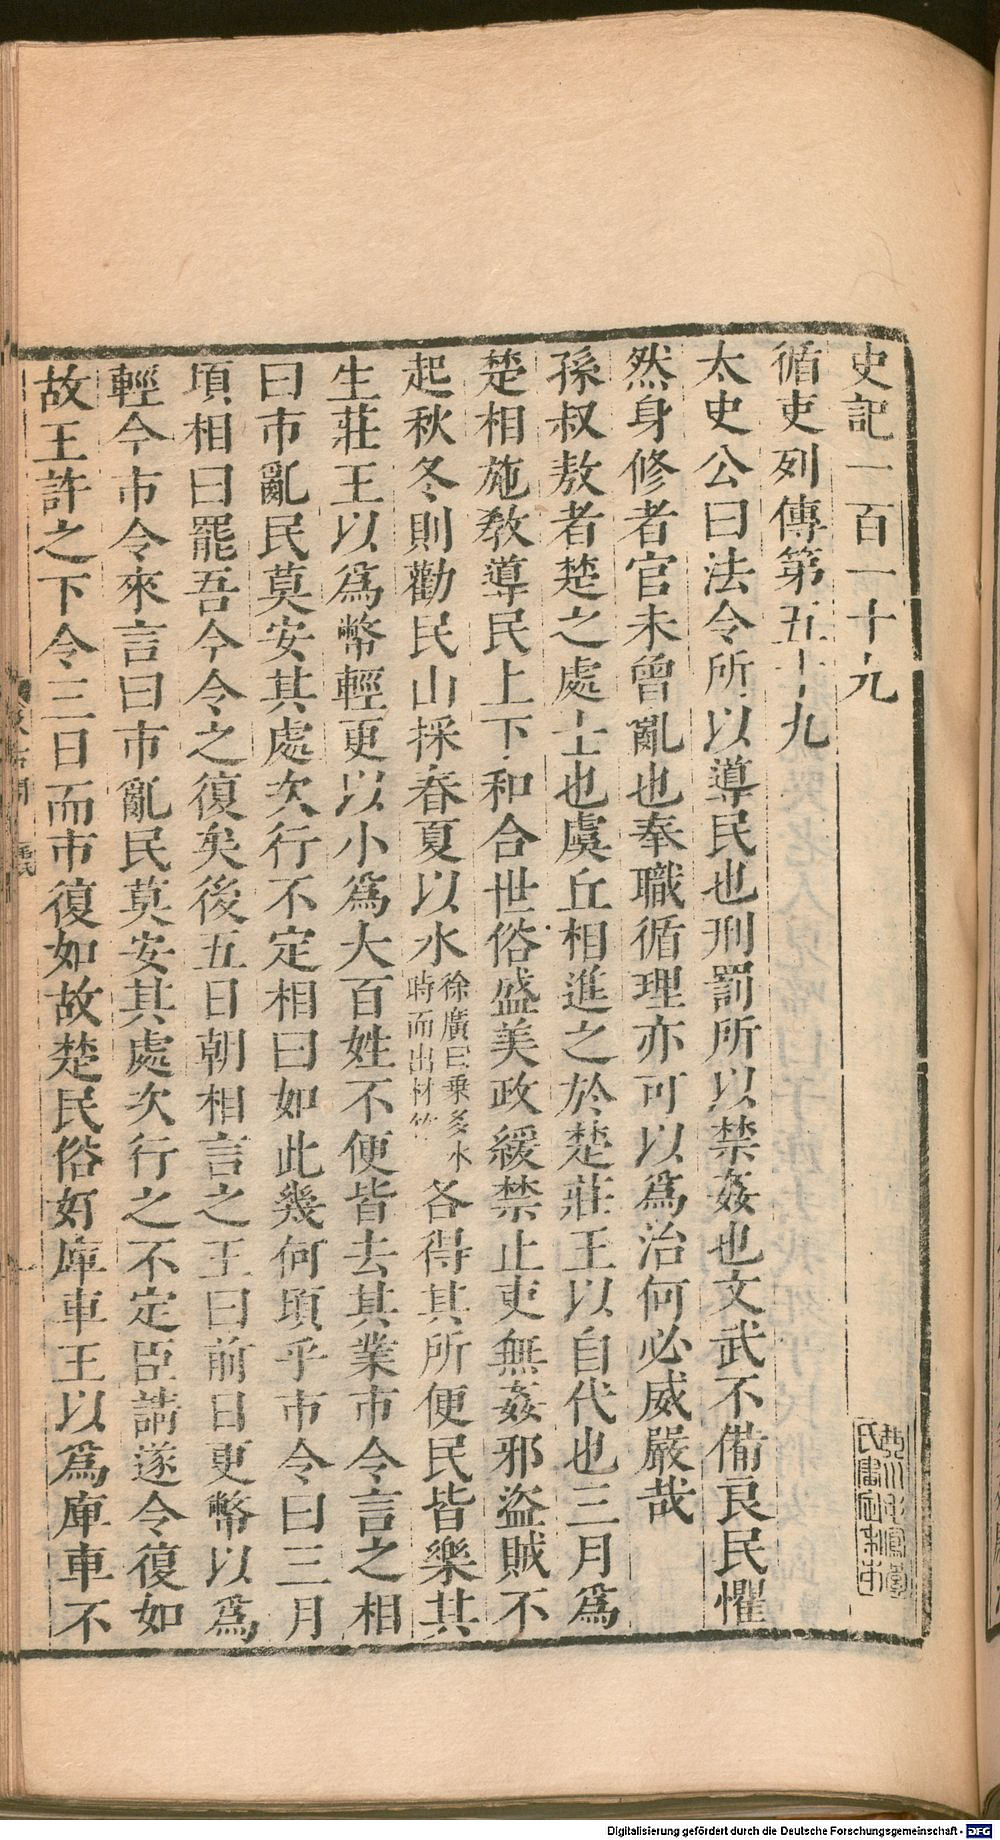 史記一百一十九
循吏列傳第五十九
太史公曰法令所以導民也刑罰所以禁姦也文武不備良民懼
然身修者官未曾亂也奉職循理亦可以為治何必威嚴哉
孫叔敖者楚之處士也虞丘相進之於楚莊王以自代也三月為
楚相施教導民上下和合世俗盛美政緩禁止吏無姦邪盜賊不
起秋冬則勸民山採春夏以水
徐廣曰乗多水
時而出材竹
各得其所便民皆樂其
生莊王以為幣輕更以小為大百姓不便皆去其業市令言之相
曰市亂民莫安其處次行不定相曰如此幾何頃乎市令曰三月
頃相曰罷吾今令之復矣後五日朝相言之王曰前日更幣以為
輕今市令來言曰市亂民莫安其處次行之不定臣請遂令復如
故王許之下令三日而市復如故楚民俗好庳車王以為庳車不
Digitalisierung gefördert durch die Deutsche Forschungsgemeinschaft - DFG